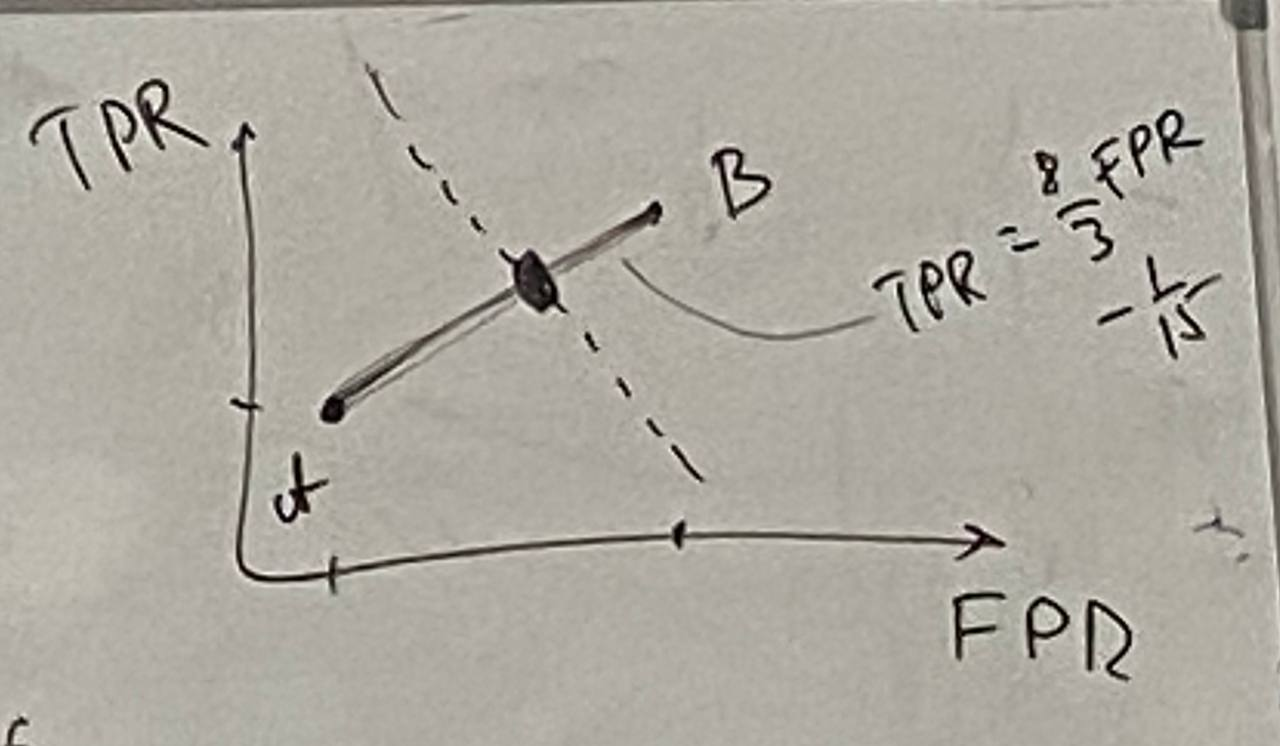 TPR
B
TPR = 8/3 FPR
- 1/15
A
FPR